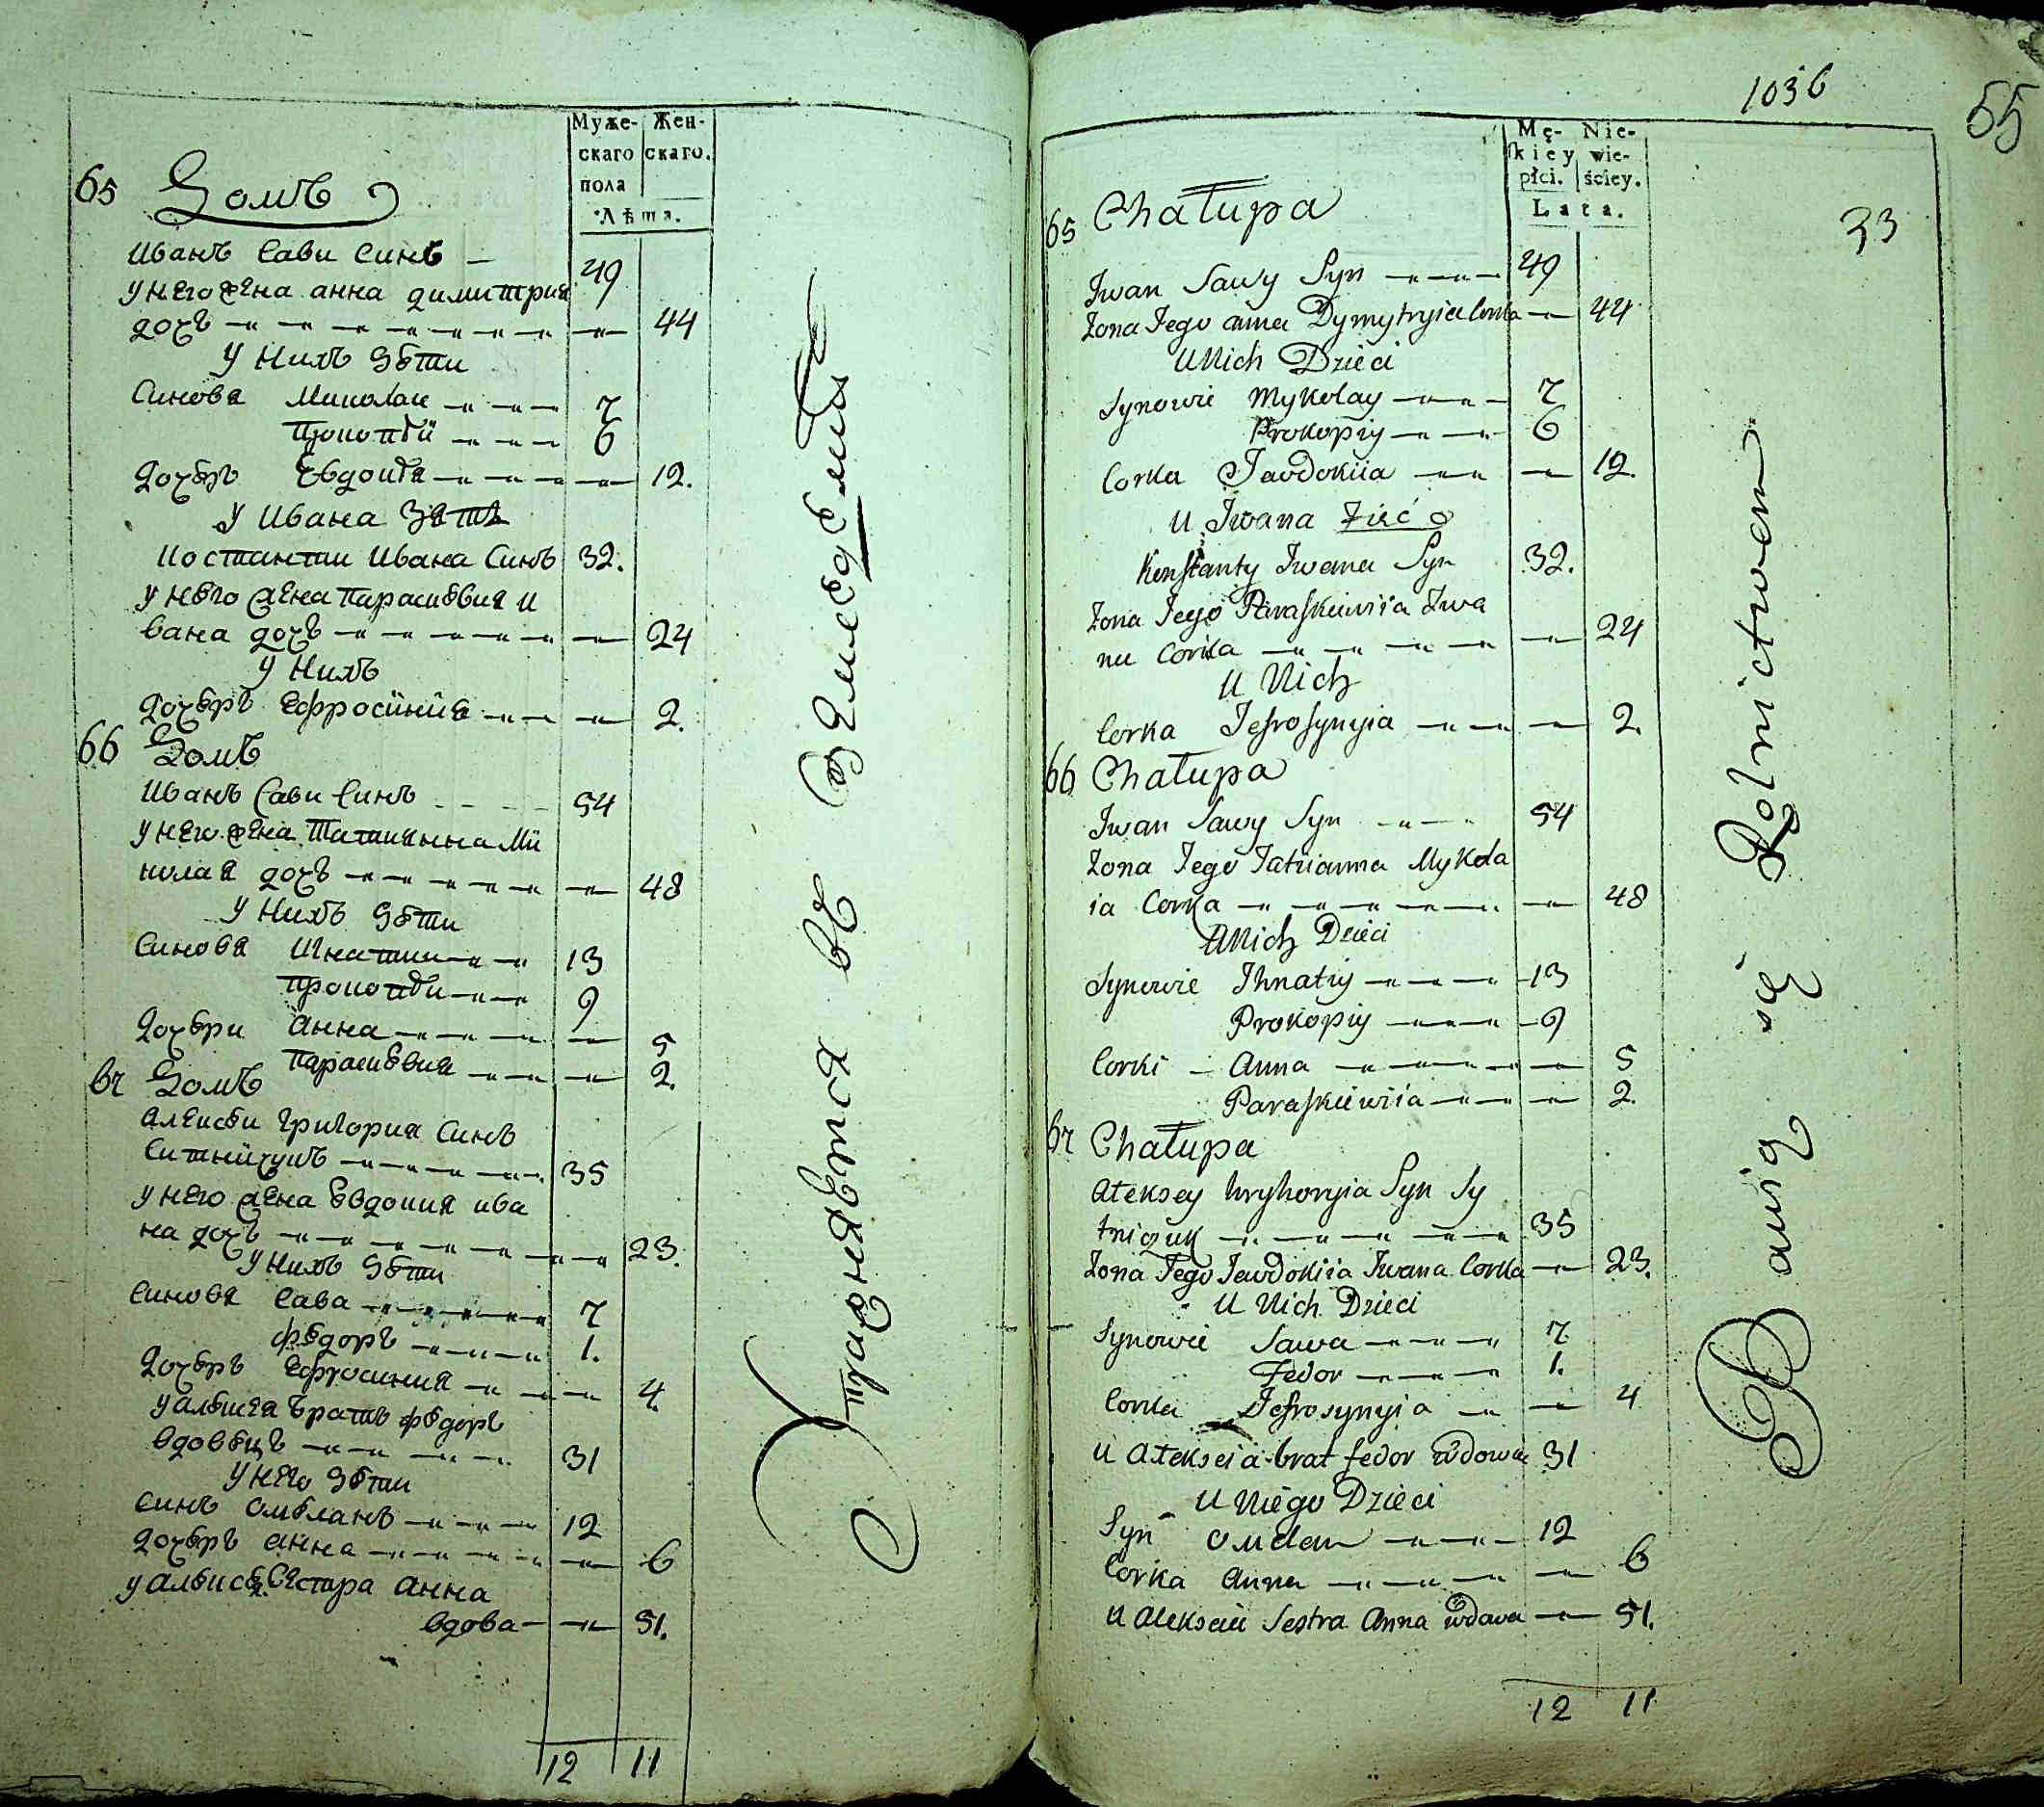 Муже- Жен-
скаго скаго.
пола
Лѣта.
65 Домъ
Иванъ Сави Синъ — 49
у него жена анна димитрия
дочъ — 44
у нихъ дѣти
Синовя Миколаи — 7
Прокопѣй — 6
дочѣръ Евдокѣя — 12.
у Ивана Зять
Костянти Ивана Синъ 32.
у него жена Параскѣвия И
вана дочъ — 24
у нихъ
дочѣръ Ефросиния — 2.
66 Домъ
Иванъ Сави Синъ 54
у него жена Татиянна Ми
колая дочъ — 48
у нихъ дѣти
Синовя Игнатии — 13
Прокопѣи — 9
дочѣри Анна — 5
Параскѣвия — 2.
67 Домъ
Алексѣи Григория Синъ
Ситничукъ — 35
у него жена Евдокия ива
на дочъ — 23.
у нихъ дѣти
Синовя Сава — 7
Фѣдоръ — 1.
дочѣръ Ефросиния — 4
у Алѣксея братъ Фѣдоръ
вдовѣцъ — 31
у него дѣти
Синъ Омѣланъ — 12
дочѣръ анна — 6
у Алѣксѣя Сестра Анна
вдова — 51.
12 11
Упражняется въ Земледелии
1036
55
33
Mę- Nie-
skiey wie-
płci. ściey.
Lata.
65 Chałupa
Iwan Sawy Syn — 49
Zona Jego anna Dymytryia Corka — 44
U Nich Dzieci
Synowie Mykolay — 7
Prokopiy — 6
Corka Jawdokiia — 12.
U Iwana Zięć
Konstanty Iwana Syn 32.
Zona Jego Paraskiewiia Iwa
na Corka — 24
U Nich
Corka Jefrosynyia — 2.
66 Chałupa
Iwan Sawy Syn 54
Zona Jego Tatiianna Mykola
ia Corka — 48
U Nich Dzieci
Synowie Ihnatiy — 13
Prokopiy — 9
Corki — Anna — 5
Paraskiewiia — 2.
67 Chałupa
Alexsey hryhoryia Syn Sy
tniczuk — 35
Zona Jego Jewdokiia Iwana Corka — 23.
U Nich Dzieci
Synowie Sawa — 7
Fedor — 1.
Corka Jefrosynyia — 4
U Alekseia brat fedor wdowiec 31
U Niego Dzieci
Syn Omelan — 12
Corka Anna — 6
U Alekseia Sestra Anna wdowa — 51.
12 11
Bawią się Rolnictwem